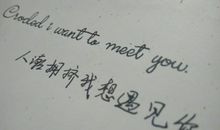 Croded i want to meet you.
人潮拥挤我想遇见你